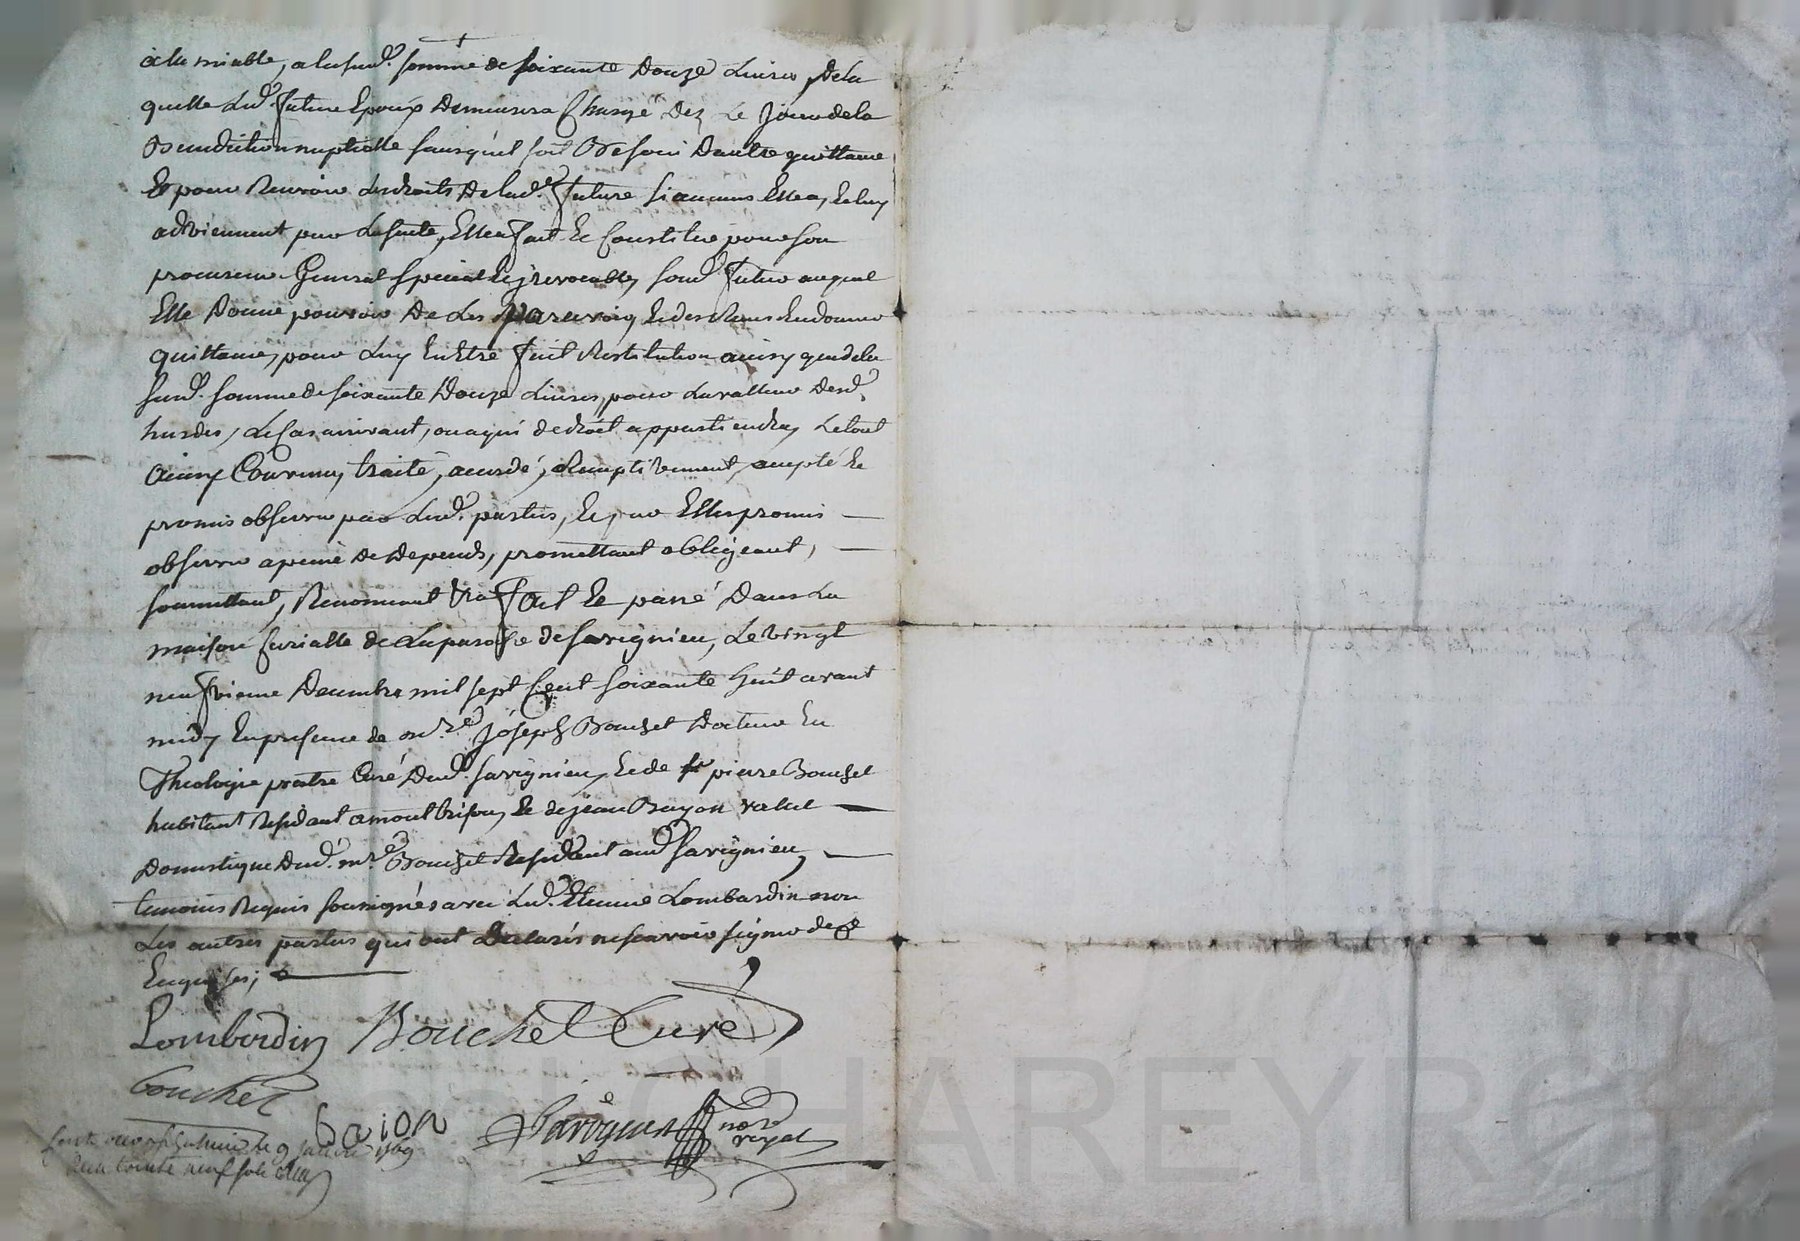 à la miable, a la sud.e somme de soixante douze Livres, de la
quelle Lud. future Epoux demeurera chargé dez Le jour de la
Benediction nuptialle sans qu'il soit Besoin d'aultre quittance,
Et pour Recevoir Les droits de Lad.e future si aucuns Elle a, Et luy
adviennent par La suite, Elle a fait Et Constitué pour son
procureur General special Et jrrevocable, sond. futur auquel
Elle donne pouvoir de Les Et des Reus En donner
quittance, pour Luy En Etre fait Restitution ainsy que de la
sud. somme de soixante Douze Livres, pour La valleur desd.
hardes, Le Cas arrivant, ou a qui de droit appartiendra, Le tout
Ainsy Convenu, traité, accordé, accepté Et
promis observer par Lesd. parties, Et, Elles promis
observer a peine de depends, promettant obligeant,
soumettant, Renoncant fait Et passé Dans La
maison Curialle de La paroisse de Savignieu, Le vingt
neufvieme Decembre mil sept Cent soixante huit avant
midy En presence de m.re Joseph Bouchet Docteur En
Theologie prestre Curé Dud. Savignieu, Et de pierre Bouchet
habitant Residant a montbrison, Et de jean Bayon valet
Domestique Dud. m.re Bouchet Residant aud. Savignieu,
temoins Requis soussignés avec Led. Etienne Lombardin non
Les autres parties qui ont declarés ne scavoir signer de ce
Enquises;
Lombardin Bouchet Curé
bouchet
baion
no.re
royal
le 9 janvier 1769
trente neuf sols
CHAREYRO